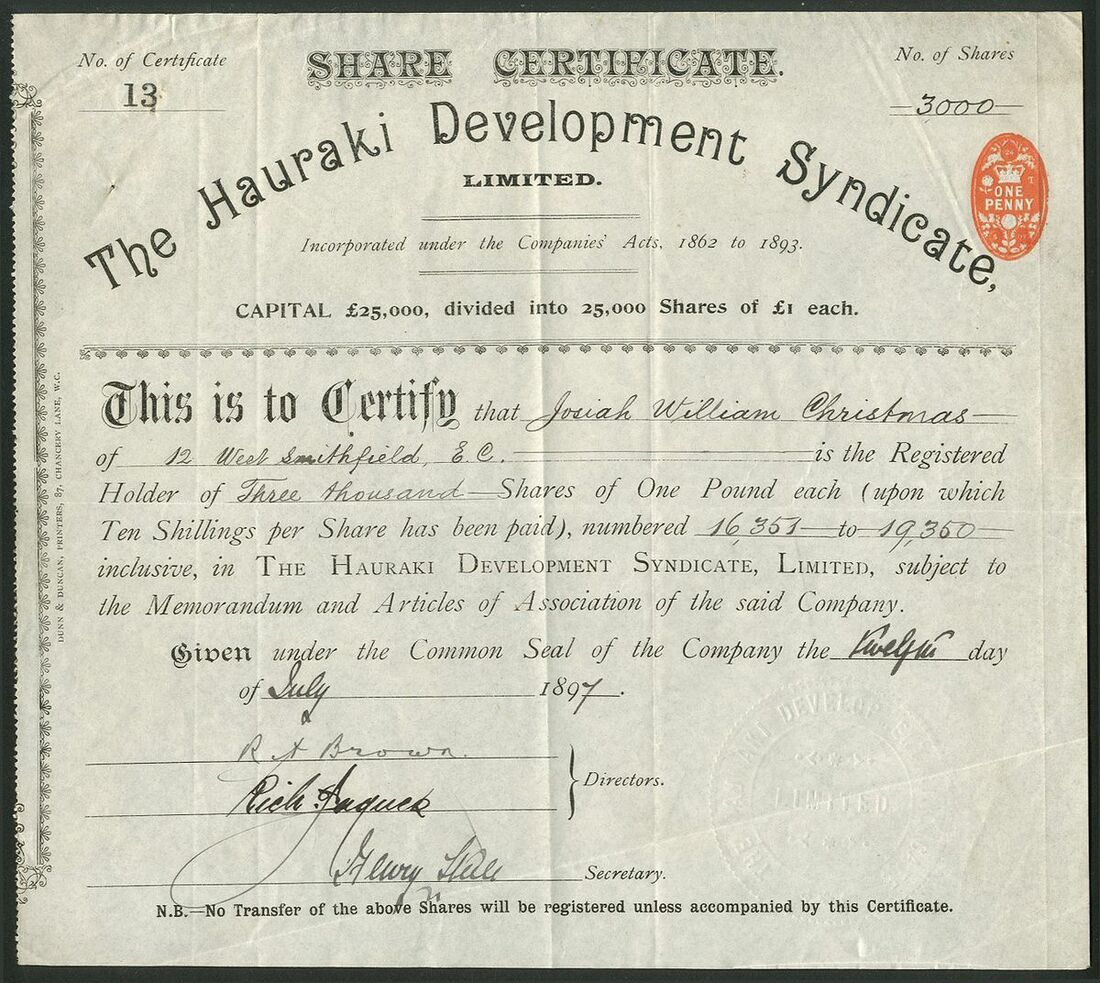 No. of Certificate
13
SHARE CERTIFICATE.
No. of Shares
3000
The Hauraki Development Syndicate,
LIMITED.
ONE
PENNY
Incorporated under the Companies' Acts, 1862 to 1893.
CAPITAL £25,000, divided into 25,000 Shares of £1 each.
This is to Certify that Josiah William Christmas
of 12 West Smithfield, E.C. is the Registered
Holder of Three thousand Shares of One Pound each (upon which
Ten Shillings per Share has been paid), numbered 16,351 to 19,350
inclusive, in THE HAURAKI DEVELOPMENT SYNDICATE, LIMITED, subject to
the Memorandum and Articles of Association of the said Company.
Given under the Common Seal of the Company the Twelfth day
of July 1897.
R A Brown.
Rich. Jaques
Directors.
Henry
Secretary.
N.B.—No Transfer of the above Shares will be registered unless accompanied by this Certificate.
DUNN & DUNCAN, PRINTERS, 87, CHANCERY LANE, W.C.
LIMITED